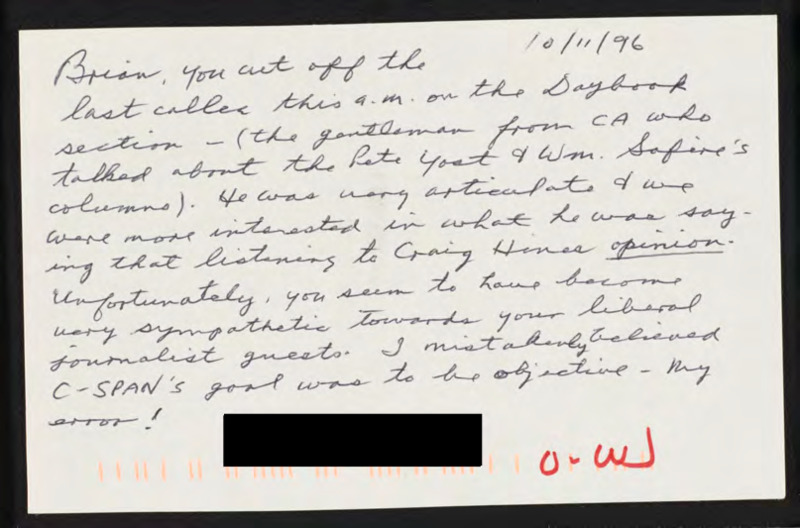 10/11/96
Brian, you cut off the
last caller this a.m. on the Daybook
section - (the gentleman from CA who
talked about the Pete Yost & Wm. Safire's
columns). He was very articulate & we
were more interested in what he was say-
ing that listening to Craig Hines opinion.
Unfortunately, you seem to have become
very sympathetic towards your liberal
journalist guests. I mistakenly believed
C-SPAN'S goal was to be objective - my
error!